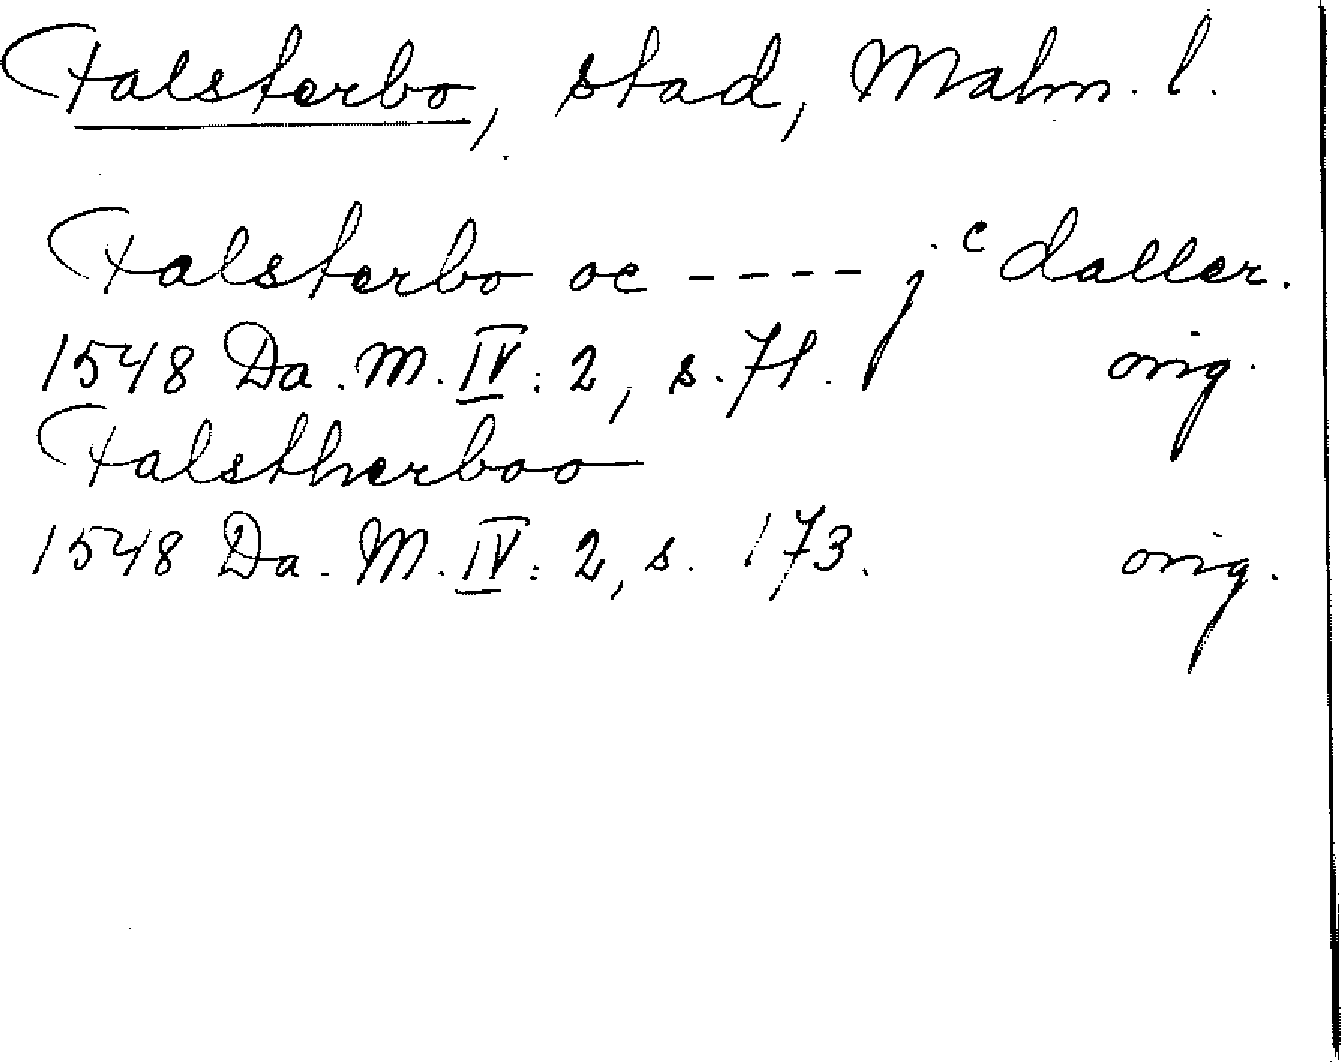 Falsterbo, stad, Malm. l.
Falsterbo oc ---- jc daller.
1548 Da. M. IV: 2, s. 71. orig.
Falstherboo
1548 Da. M. IV: 2, s. 173. orig.